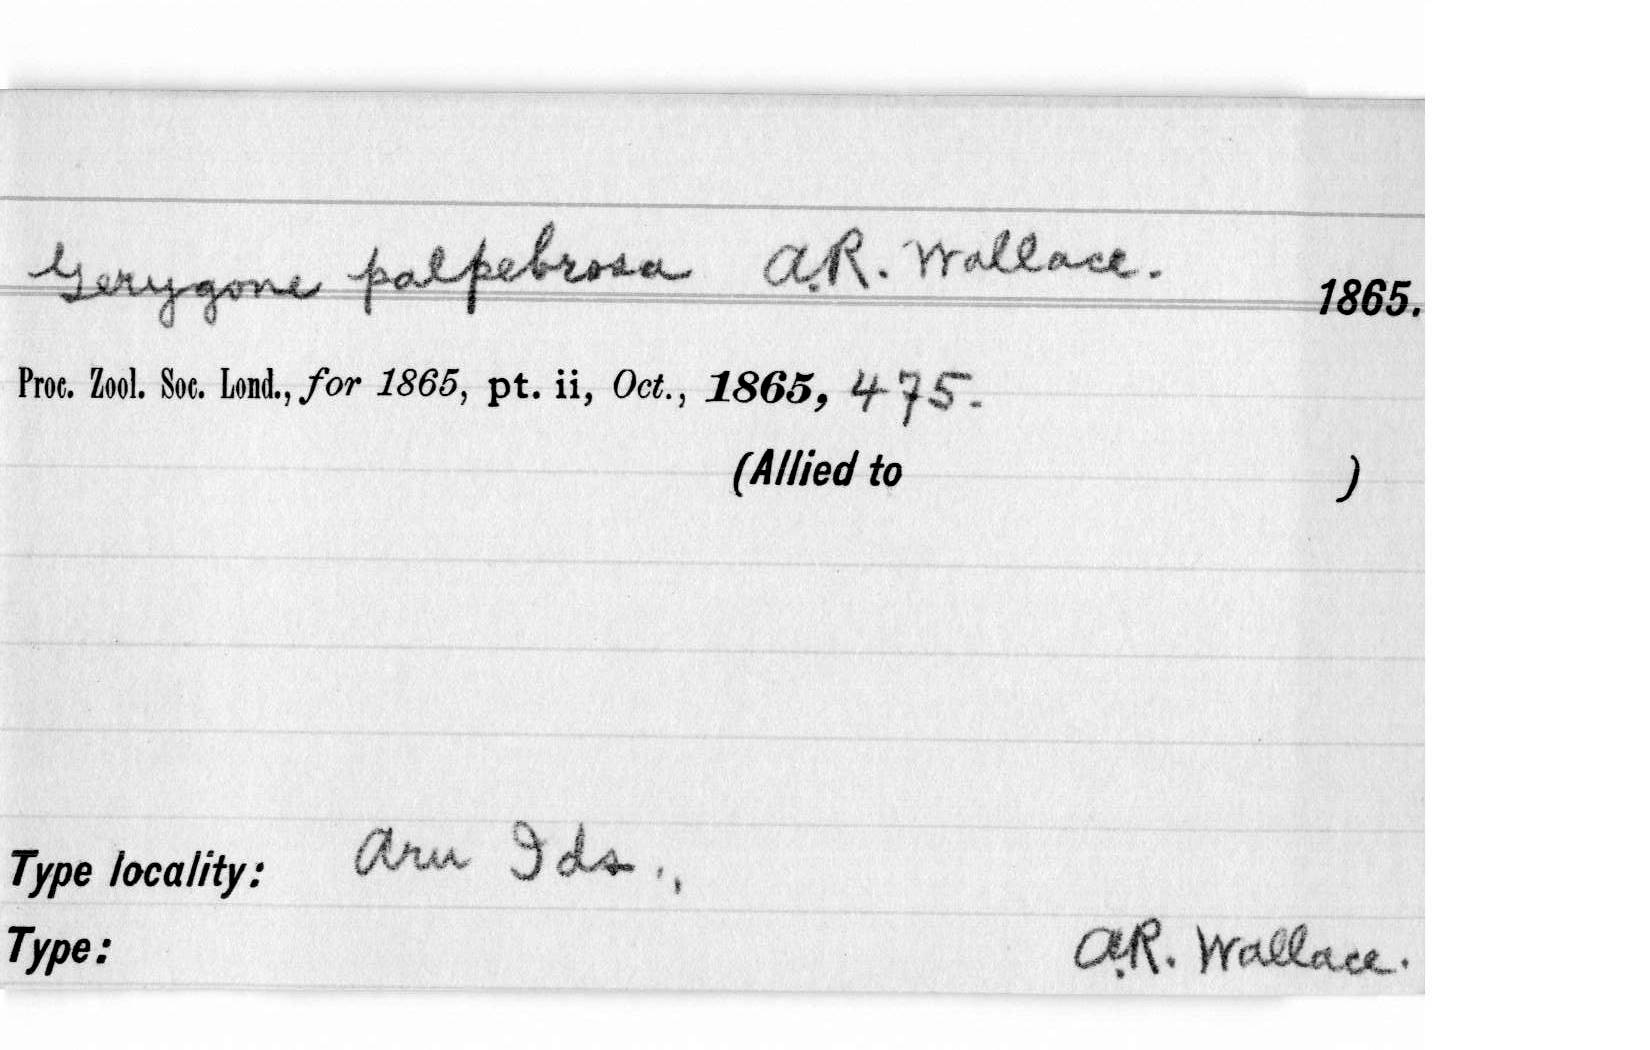 Gerygone palpebrosa A.R. Wallace. 1865.
Proc. Zool. Soc. Lond., for 1865, pt. ii, Oct., 1865, 475.
(Allied to )
Type locality: Aru Ids.,
Type: A.R. Wallace.